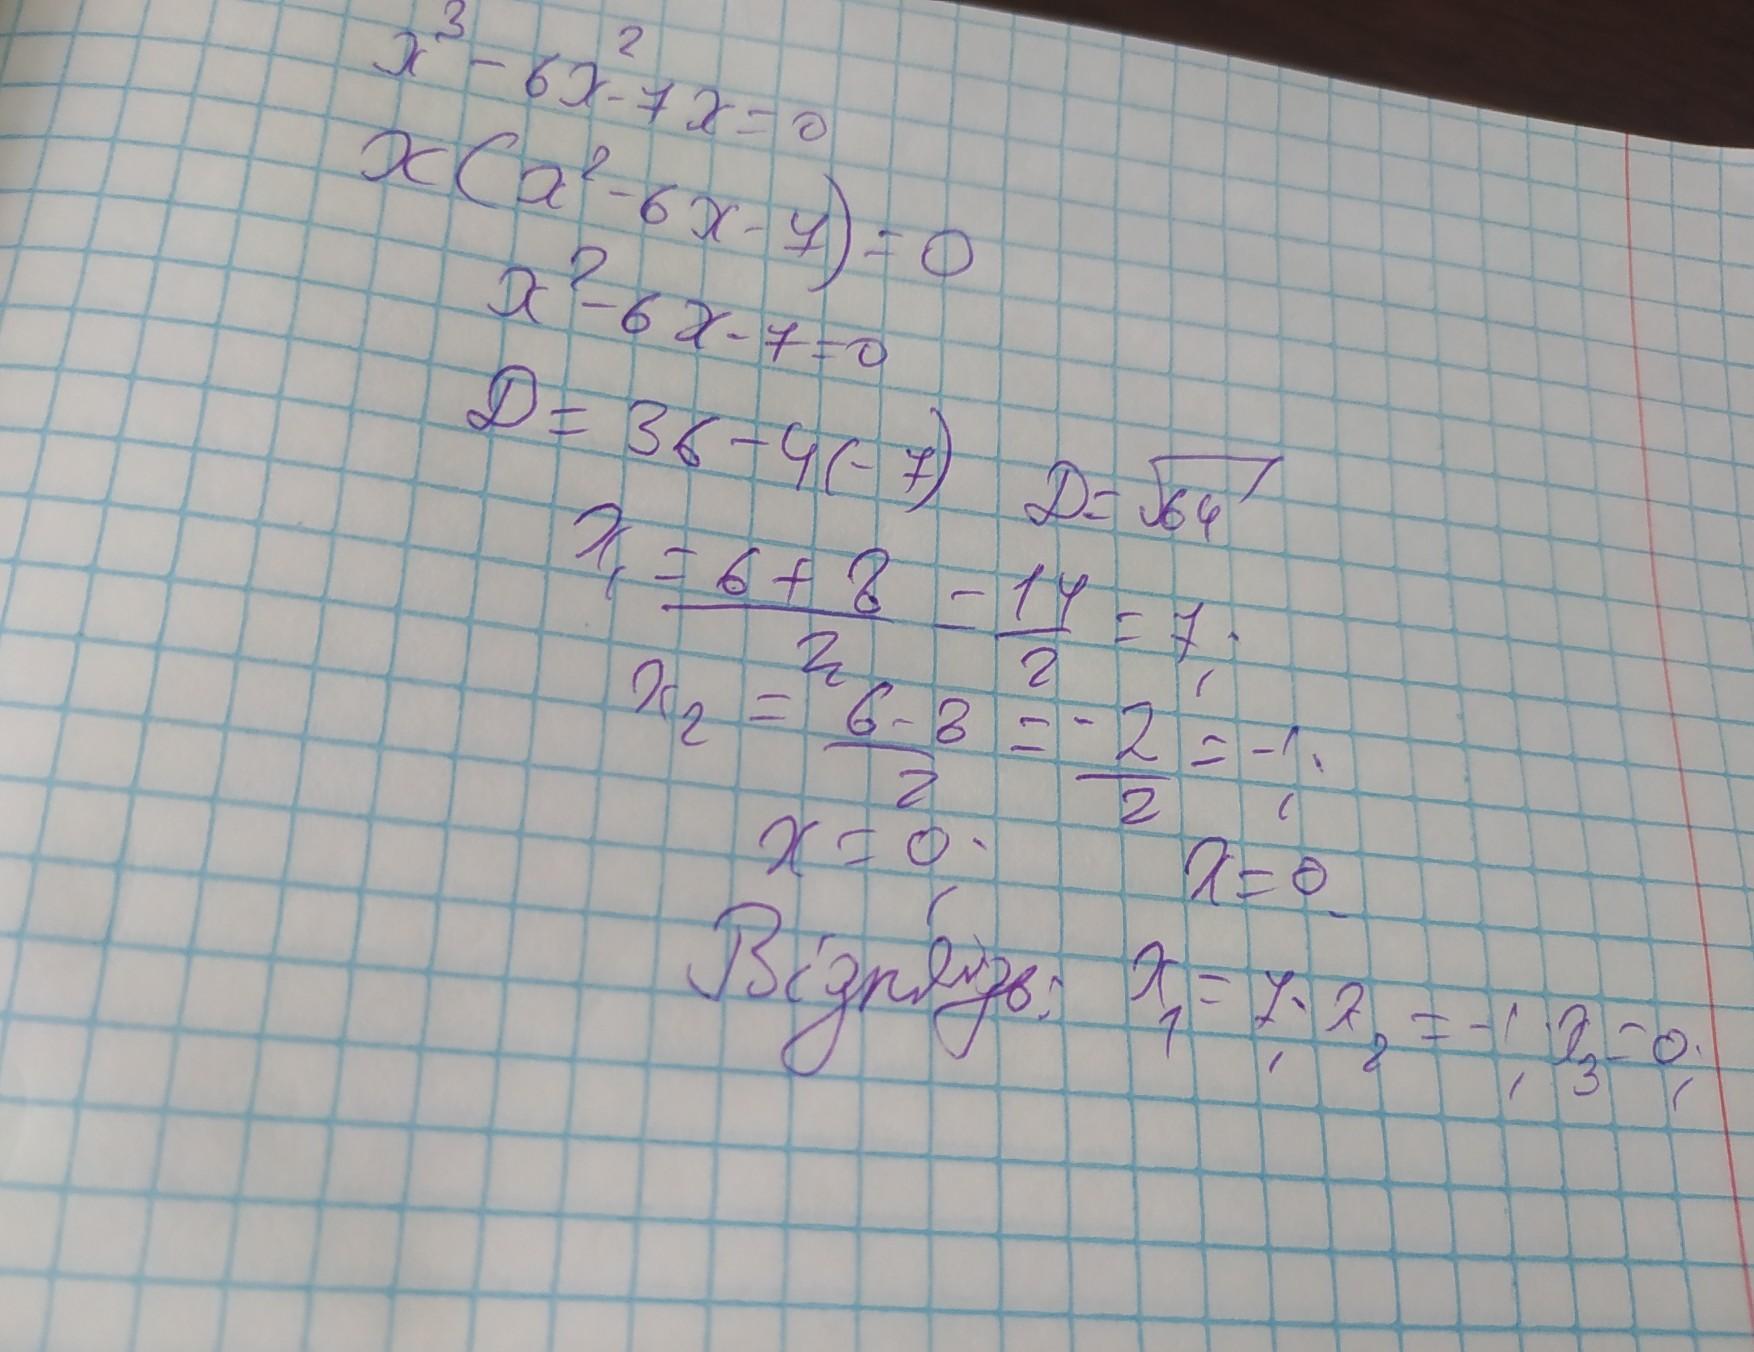 x³ - 6x² - 7x = 0
x(x² - 6x - 7) = 0
x² - 6x - 7 = 0
D = 36 - 4(-7) D = √64
x₁ = (6 + 8)/2 = 14/2 = 7;
x₂ = (6 - 8)/2 = -2/2 = -1;
x = 0; x = 0
Відповідь: x₁ = 7; x₂ = -1; x₃ = 0;